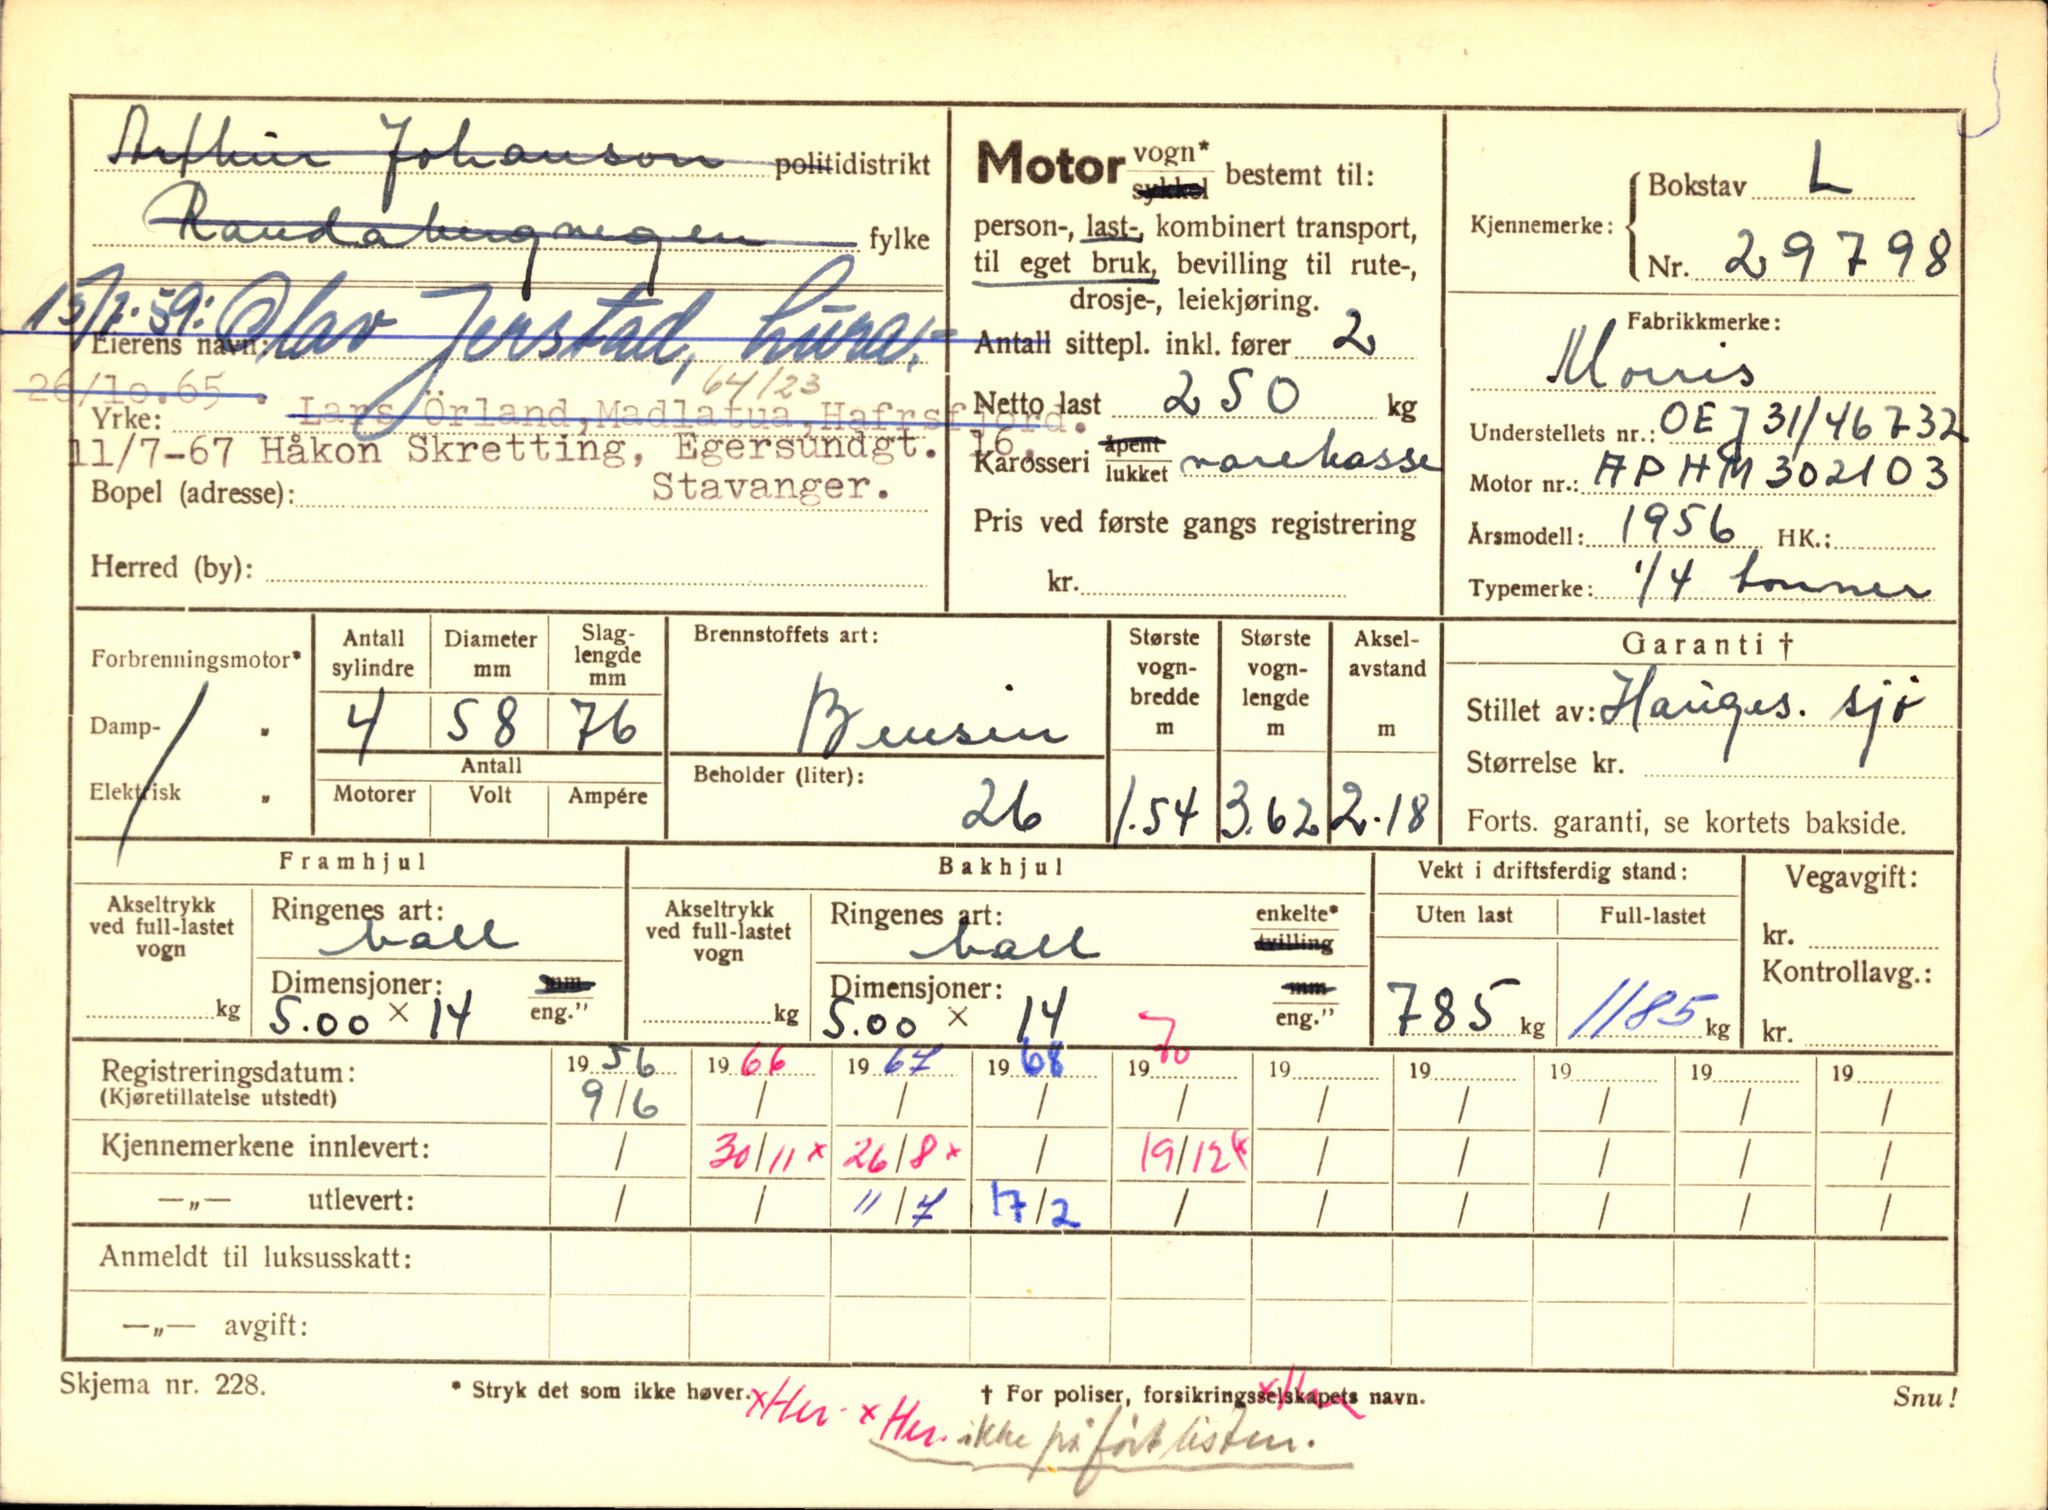 Arthur Johanson politidistrikt
Randabergvegen fylke
15/7-59: Olav Jerstad, Lura,-
Eierens navn:
26/10.65 . Lars Örland, Madlatua, Hafrsfjord.
64/23
Yrke:
11/7-67 Håkon Skretting, Egersundgt. 16.
Stavanger.
Bopel (adresse):
Herred (by):
Motor vogn* sykkel bestemt til:
person-, last-, kombinert transport,
til eget bruk, bevilling til rute-,
drosje-, leiekjøring.
Antall sittepl. inkl. fører 2
Netto last 250 kg
Karosseri åpent lukket varekasse
Pris ved første gangs registrering
kr.
Kjennemerke: Bokstav L
Nr. 29798
Fabrikkmerke:
Morris
Understellets nr.: OEJ 31/46732
Motor nr.: APHM302103
Årsmodell: 1956 HK.:
Typemerke: 1/4 tonner
Forbrenningsmotor*
Damp- „
Elektrisk „
Antall sylindre 4
Diameter mm 58
Slag-lengde mm 76
Antall
Motorer Volt Ampére
Brennstoffets art:
Bensin
Beholder (liter):
26
Største vogn-bredde m 1.54
Største vogn-lengde m 3.62
Aksel-avstand m 2.18
Garanti †
Stillet av: Hauges. sjø
Størrelse kr.
Forts. garanti, se kortets bakside.
Framhjul
Akseltrykk ved full-lastet vogn
kg
Ringenes art:
ball
Dimensjoner: mm
5.00 × 14 eng."
Bakhjul
Akseltrykk ved full-lastet vogn
kg
Ringenes art: enkelte*
ball tvilling
Dimensjoner: mm
5.00 × 14 eng."
Vekt i driftsferdig stand:
Uten last Full-lastet
785 kg 1185 kg
Vegavgift:
kr.
Kontrollavg.:
kr.
Registreringsdatum: 1956 1966 1967 1968 1970 19 19 19 19 19
(Kjøretillatelse utstedt) 9/6 / / / / / / / / /
Kjennemerkene innlevert: / 30/11 x 26/8 x / 19/12 x / / / / /
—„— utlevert: / / 11/7 17/2 / / / / / /
Anmeldt til luksusskatt:
—„— avgift:
Skjema nr. 228. * Stryk det som ikke høver. † For poliser, forsikringsselskapets navn. Snu!
x Her. x Her. x Her
ikke påført listen.